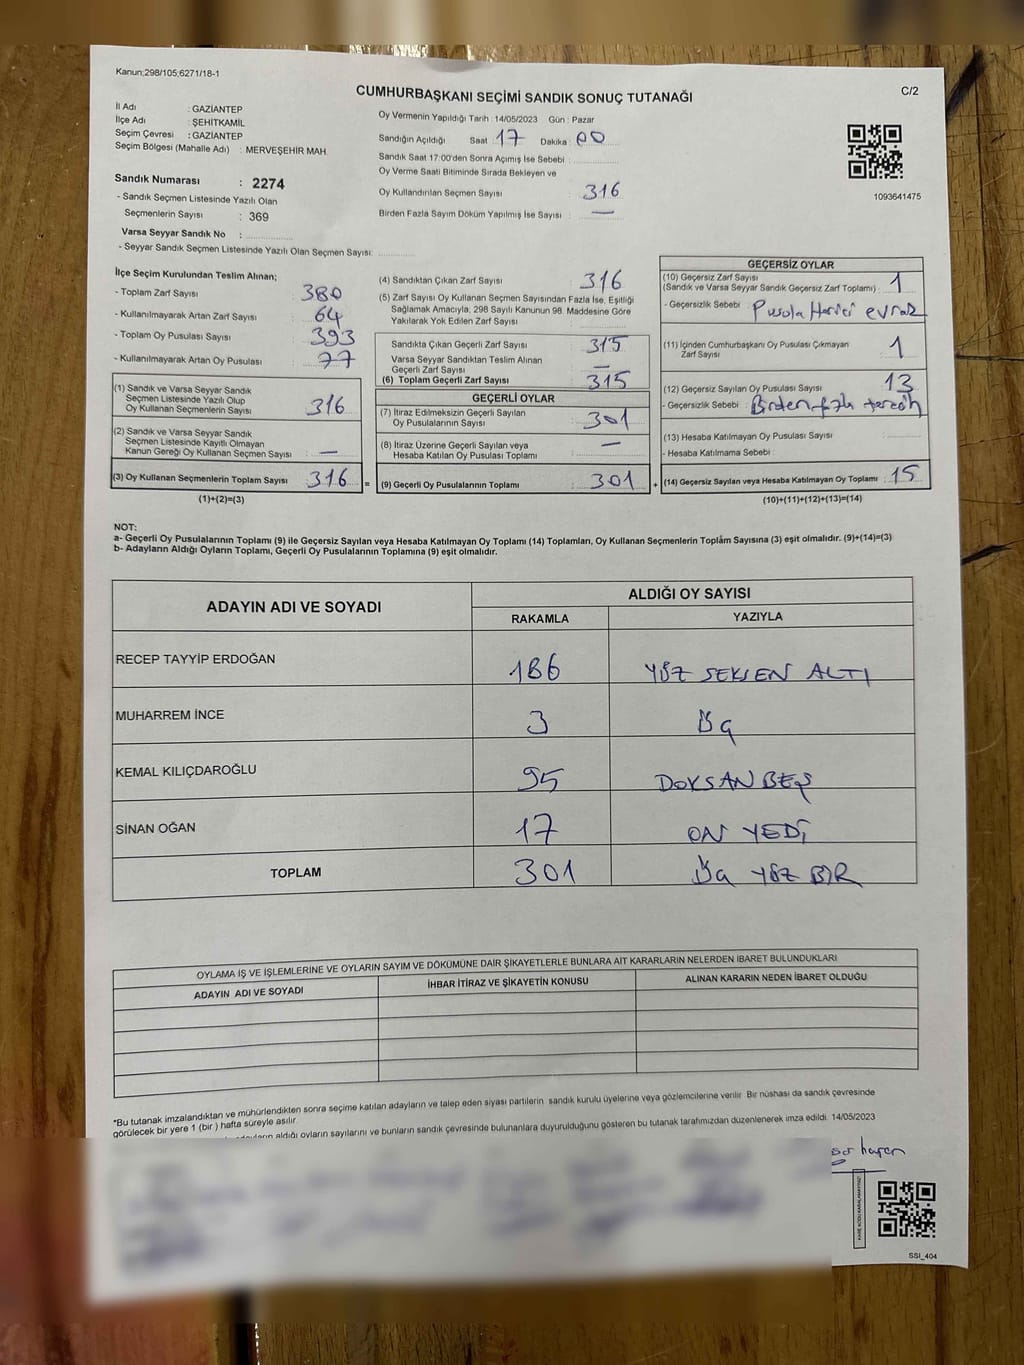 Kanun;298/105;6271/18-1
C/2
CUMHURBAŞKANI SEÇİMİ SANDIK SONUÇ TUTANAĞI
İl Adı : GAZİANTEP
İlçe Adı : ŞEHİTKAMİL
Seçim Çevresi : GAZİANTEP
Seçim Bölgesi (Mahalle Adı) : MERVEŞEHİR MAH.
Sandık Numarası : 2274
- Sandık Seçmen Listesinde Yazılı Olan
Seçmenlerin Sayısı : 369
Varsa Seyyar Sandık No :
- Seyyar Sandık Seçmen Listesinde Yazılı Olan Seçmen Sayısı:
Oy Vermenin Yapıldığı Tarih : 14/05/2023 Gün : Pazar
Sandığın Açıldığı Saat : 17 Dakika : 00
Sandık Saat 17:00'den Sonra Açımış İse Sebebi :
Oy Verme Saati Bitiminde Sırada Bekleyen ve
Oy Kullandırılan Seçmen Sayısı : 316
Birden Fazla Sayım Döküm Yapılmış İse Sayısı : —
1093641475
İlçe Seçim Kurulundan Teslim Alınan;
- Toplam Zarf Sayısı : 380
- Kullanılmayarak Artan Zarf Sayısı : 64
- Toplam Oy Pusulası Sayısı : 393
- Kullanılmayarak Artan Oy Pusulası : 77
(1) Sandık ve Varsa Seyyar Sandık
Seçmen Listesinde Yazılı Olup
Oy Kullanan Seçmenlerin Sayısı : 316
(2) Sandık ve Varsa Seyyar Sandık
Seçmen Listesinde Kayıtlı Olmayan
Kanun Gereği Oy Kullanan Seçmen Sayısı : —
(3) Oy Kullanan Seçmenlerin Toplam Sayısı : 316 =
(1)+(2)=(3)
(4) Sandıktan Çıkan Zarf Sayısı : 316
(5) Zarf Sayısı Oy Kullanan Seçmen Sayısından Fazla İse, Eşitliği
Sağlamak Amacıyla; 298 Sayılı Kanunun 98. Maddesine Göre
Yakılarak Yok Edilen Zarf Sayısı :
Sandıkta Çıkan Geçerli Zarf Sayısı : 315
Varsa Seyyar Sandıktan Teslim Alınan
Geçerli Zarf Sayısı : —
(6) Toplam Geçerli Zarf Sayısı : 315
GEÇERLİ OYLAR
(7) İtiraz Edilmeksizin Geçerli Sayılan
Oy Pusulalarının Sayısı : 301
(8) İtiraz Üzerine Geçerli Sayılan veya
Hesaba Katılan Oy Pusulası Toplamı : —
(9) Geçerli Oy Pusulalarının Toplamı : 301 +
GEÇERSİZ OYLAR
(10) Geçersiz Zarf Sayısı
(Sandık ve Varsa Seyyar Sandık Geçersiz Zarf Toplamı) : 1
- Geçersizlik Sebebi : Pusula Harici evrak
(11) İçinden Cumhurbaşkanı Oy Pusulası Çıkmayan
Zarf Sayısı : 1
(12) Geçersiz Sayılan Oy Pusulası Sayısı : 13
- Geçersizlik Sebebi : Birden fazla tercih
(13) Hesaba Katılmayan Oy Pusulası Sayısı :
- Hesaba Katılmama Sebebi :
(14) Geçersiz Sayılan veya Hesaba Katılmayan Oy Toplamı : 15
(10)+(11)+(12)+(13)=(14)
NOT:
a- Geçerli Oy Pusulalarının Toplamı (9) ile Geçersiz Sayılan veya Hesaba Katılmayan Oy Toplamı (14) Toplamları, Oy Kullanan Seçmenlerin Toplam Sayısına (3) eşit olmalıdır. (9)+(14)=(3)
b- Adayların Aldığı Oyların Toplamı, Geçerli Oy Pusulalarının Toplamına (9) eşit olmalıdır.
ADAYIN ADI VE SOYADI ALDIĞI OY SAYISI
RAKAMLA YAZIYLA
RECEP TAYYİP ERDOĞAN 186 YÜZ SEKSEN ALTI
MUHARREM İNCE 3 Üç
KEMAL KILIÇDAROĞLU 95 DOKSAN BEŞ
SİNAN OĞAN 17 ON YEDİ
TOPLAM 301 Üç YÜZ BİR
OYLAMA İŞ VE İŞLEMLERİNE VE OYLARIN SAYIM VE DÖKÜMÜNE DAİR ŞİKAYETLERLE BUNLARA AİT KARARLARIN NELERDEN İBARET BULUNDUKLARI
ADAYIN ADI VE SOYADI İHBAR İTİRAZ VE ŞİKAYETİN KONUSU ALINAN KARARIN NEDEN İBARET OLDUĞU
*Bu tutanak imzalandıktan ve mühürlendikten sonra seçime katılan adayların ve talep eden siyasi partilerin sandık kurulu üyelerine veya gözlemcilerine verilir. Bir nüshası da sandık çevresinde
görülecek bir yere 1 (bir) hafta süreyle asılır.
aldığı oyların sayılarını ve bunların sandık çevresinde bulunanlara duyurulduğunu gösteren bu tutanak tarafımızdan düzenlenerek imza edildi. 14/05/2023
SSI_404